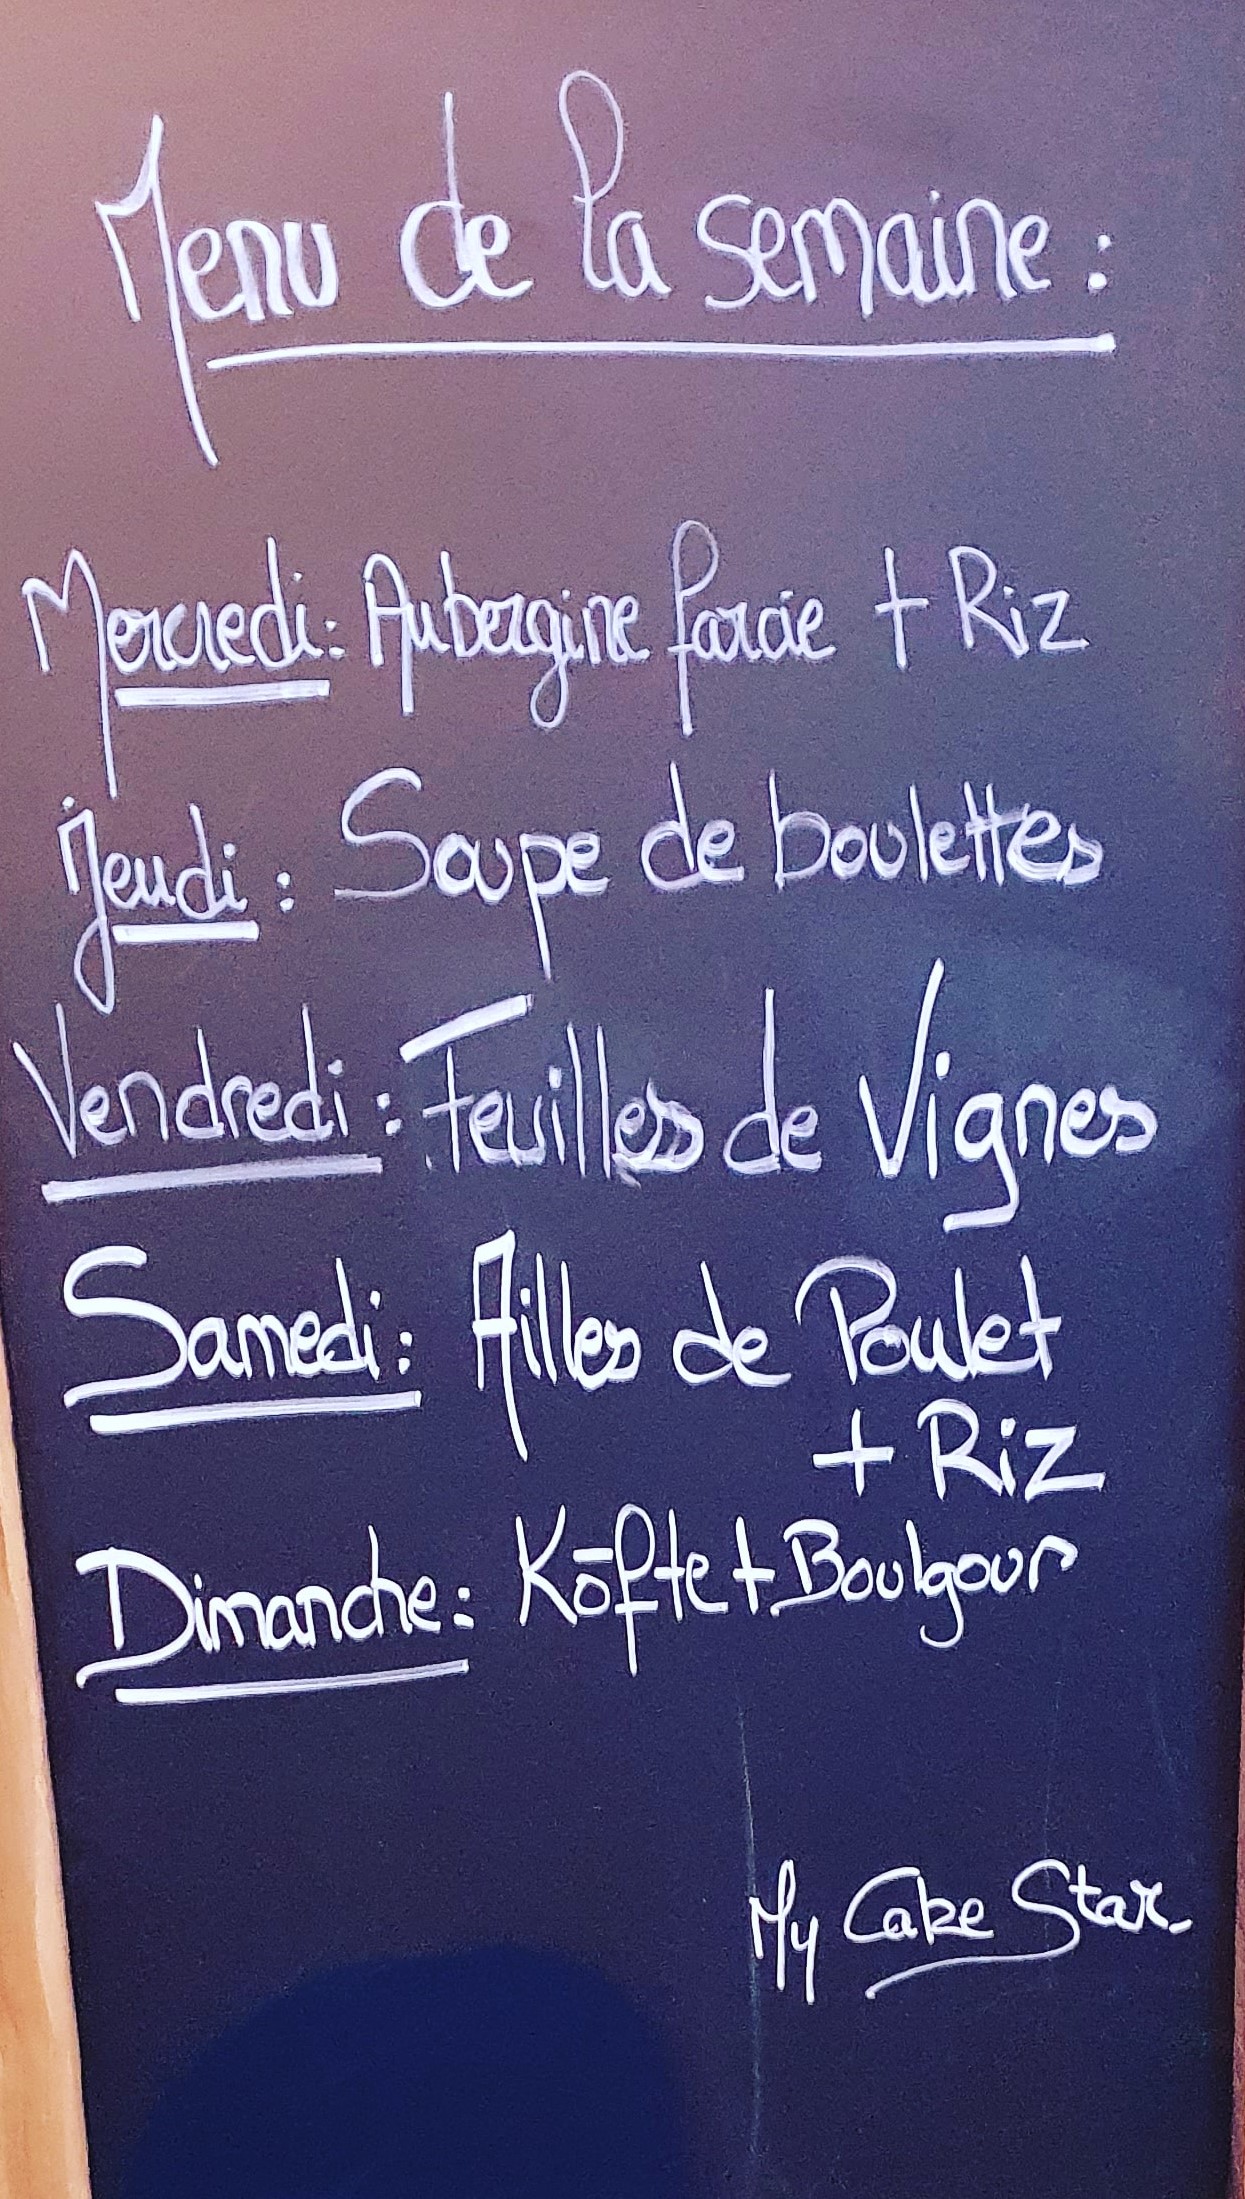 Menu de la semaine :
Mercredi : Aubergine farcie + Riz
Jeudi : Soupe de boulettes
Vendredi : Feuilles de Vignes
Samedi : Ailles de Poulet
+ Riz
Dimanche : Kōfte + Boulgour
My Cake Star